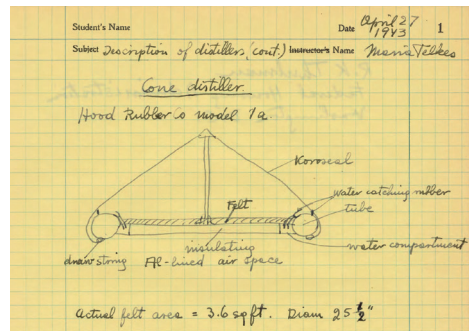 Student's Name Date April 27 1943 1
Subject Description of distillers (cont.) Instructor's Name Maria Telkes
Cone distiller
Hood Rubber Co model 1a.
Koroseal
Felt
water catching rubber
tube
insulating
water compartment
drawstring Al-lined air space
Actual felt area = 3.6 sqft. Diam 25 1/2"